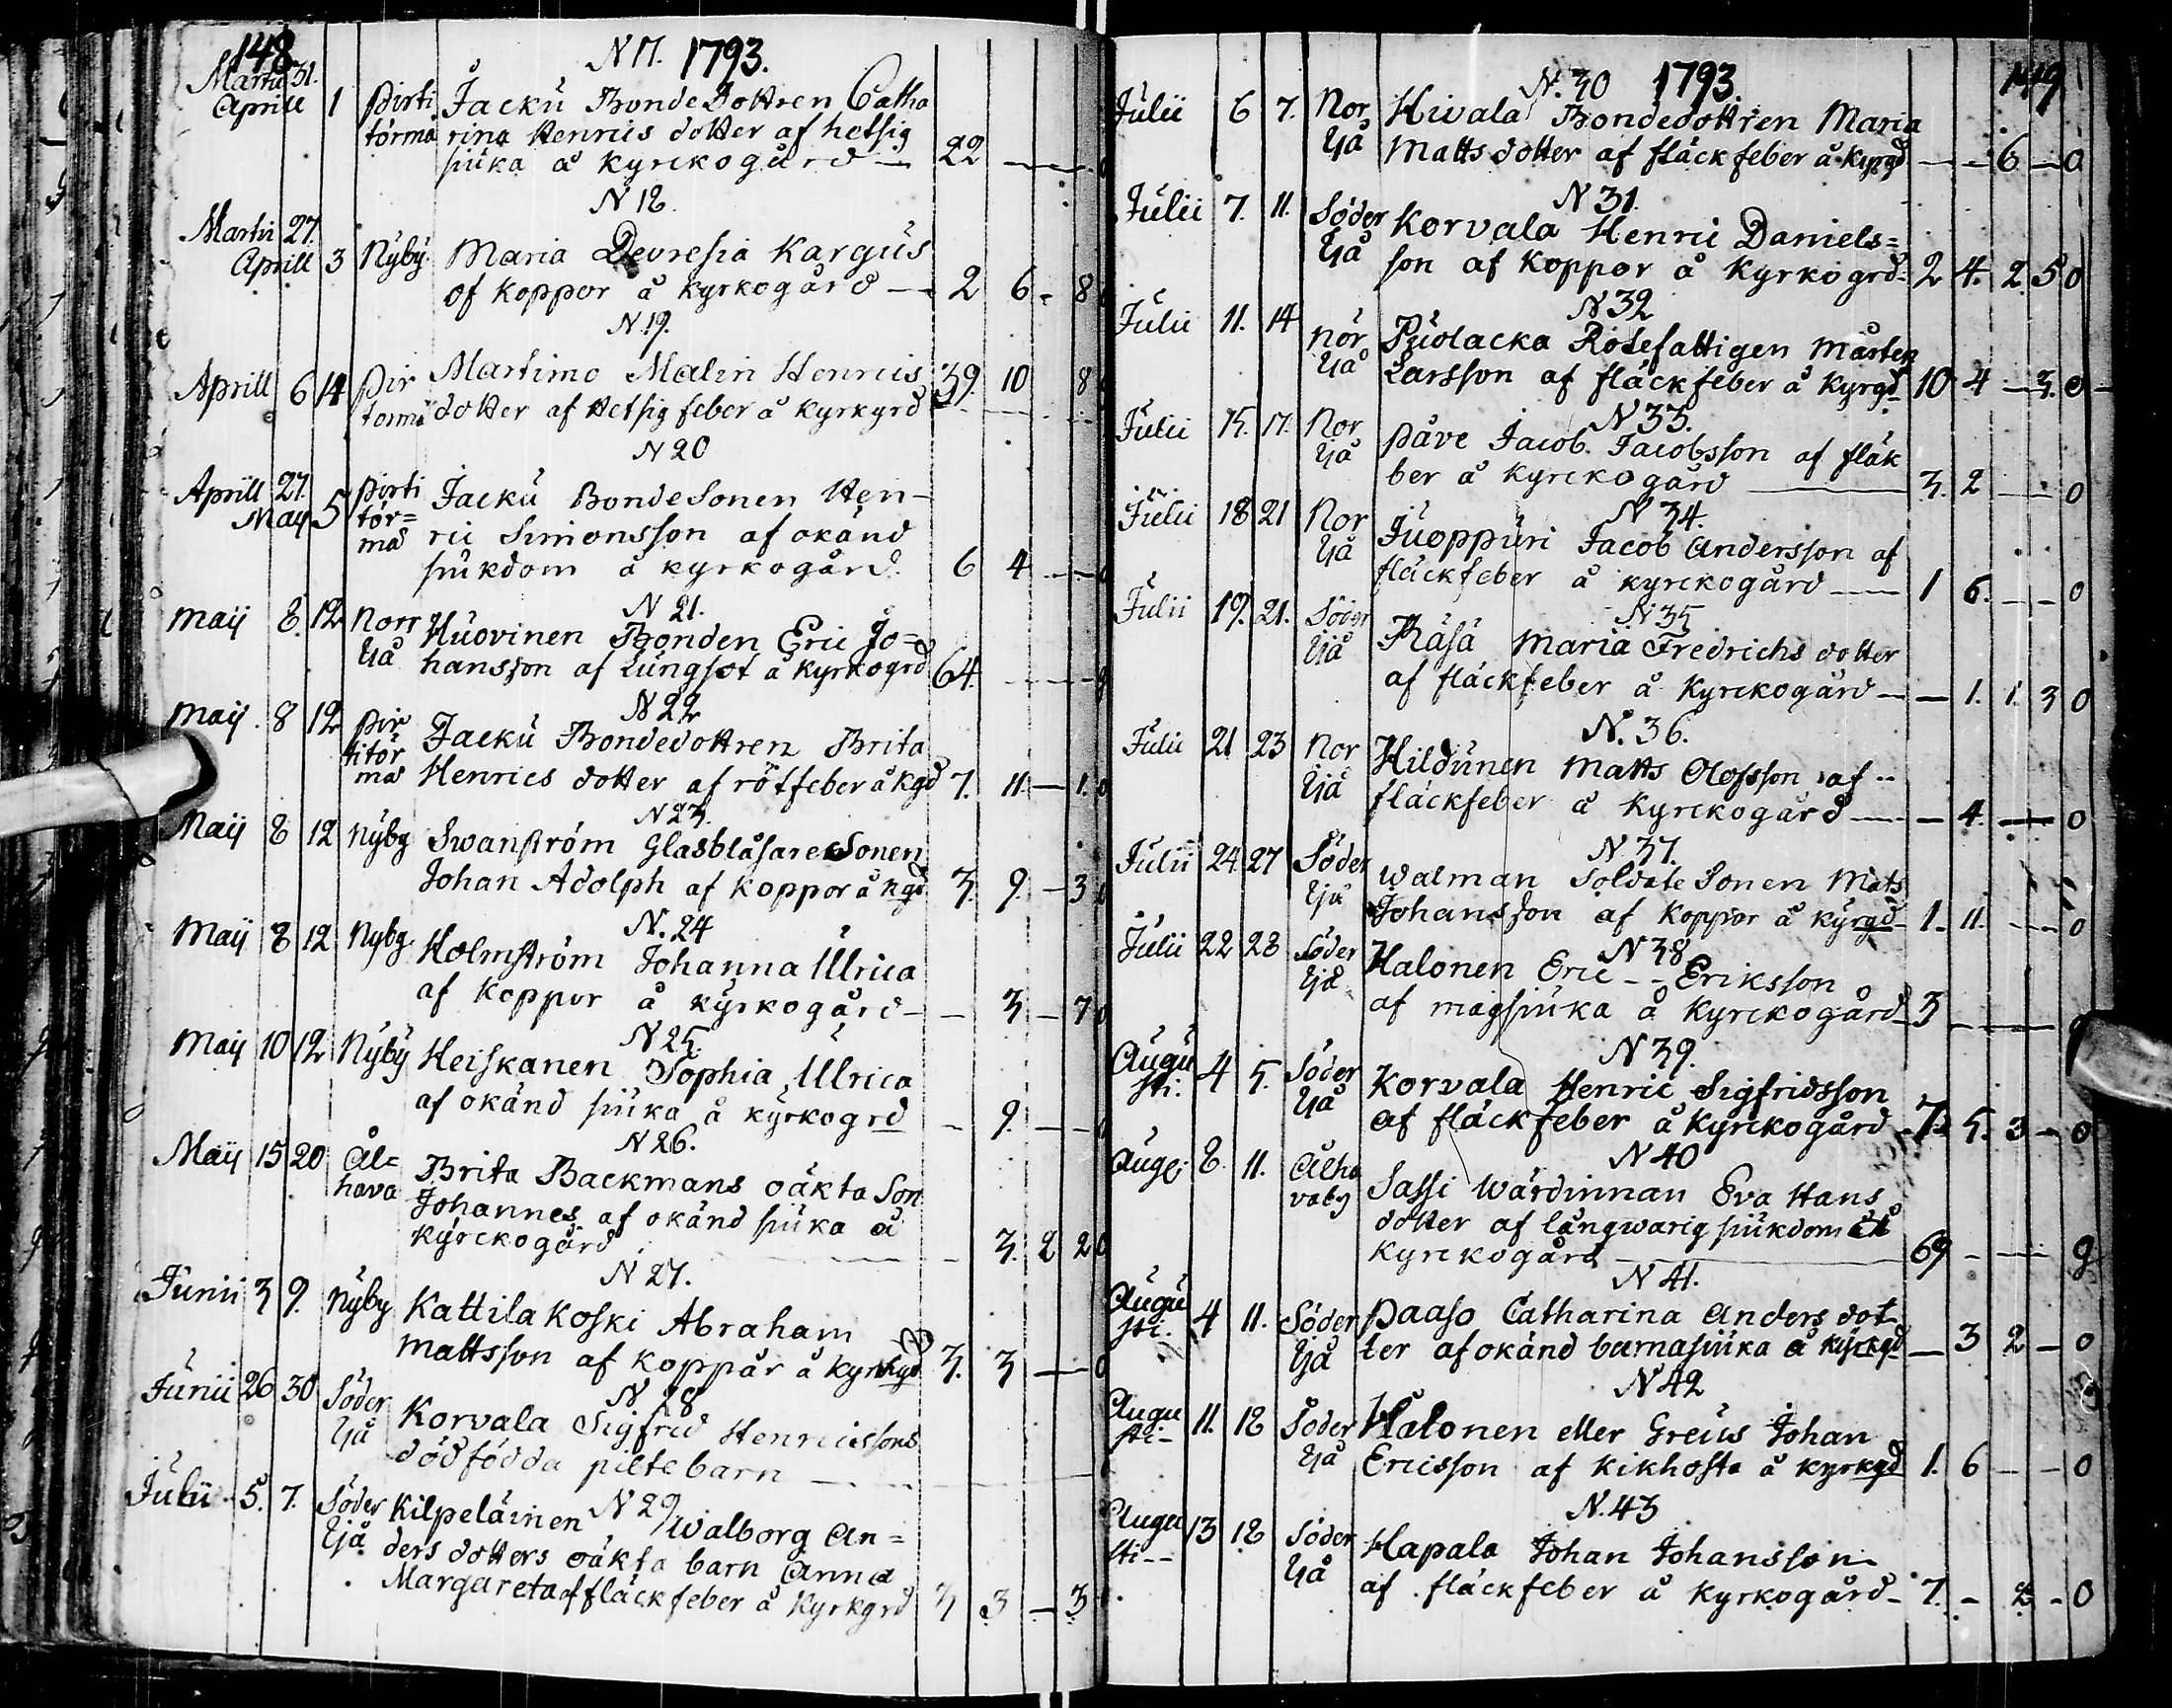 148
N 17. 1793.
Martii 31.
Aprill 1 Pirti Jacku BondeDottren Catha
törmä rina Henrics dotter af hetsig
siuka å kyrckogård — 22 — —
N 18.
Martii 27.
Aprill 3 Nyby Maria Devresia Kargus
of koppor å kyrkogård — 2 6 - 8
N 19.
Aprill 6 14 Pir Martimo Malin Henrics 39. 10 8
törmä dotter af Hetsig feber å kyrkgrd
N 20
Aprill 27. Pirti Jacku BondeSonen Hen-
May 5 tör= ric Simonsson af okänd
mä siukdom å kyrkogård. 6 4 — —
N 21.
Maij 8. 12 Norr Huovinen Bonden Eric Jo=
Ijå hansson af Lungsot å kyrkogrd 64 — — g
N 22
Maij 8 12 Pir Jacku Bondedottren Brita
titör
mä Henrics dotter af rötfeber å kgd 7. 11 — 1. 0
N 23.
Maij 8 12 Nyby Swanström GlasblåsareSonen
Johan Adolph af koppor å kgd 3. 9. — 3 0
N. 24
Maij 8 12 Nyby. Holmström Johanna Ulrica
af koppor å kyrkogård — — 3 — 7 0
N 25.
Maij 10 12 Nyby Heiskanen Sophia Ulrica
af okänd siuka å kyrkogrd — 9. — — 0
N 26.
Maij 15 20 Al= Brita Backmans oäkta Son
hava Johannes af okänd siuka å
kyrckogård — 3. 2 2 0
N 27.
Junii 3 9. Nyby Kattilakoski Abraham
Mattsson af koppår å kyrkgd 3. 3 — — 0
N 28
Junii 26 30 Söder Korvala Sigfrid Henricssons
Ijå dödfödda piltebarn —
N 29
Julii 5. 7. Söder Kilpeläinen Walborg An=
Ijå ders dotters oäkta barn Anna
Margareta af fläckfeber å kyrkgrd 3 3 — 3
149
N. 30 1793.
Julii 6 7. Nor Hivala Bondedottren Maria
Ijå Matts dotter af fläckfeber å kyrgd — — 6 — 0
N 31.
Julii 7. 11. Söder Korvala Henric Daniels=
Ijå son af koppor å kyrkogrd. 2 4. 2 5 0
N 32
Julii 11. 14 Nor Puolacka Rotefattigen Mårten
Ijå Larsson af fläckfeber å kyrgd 10 4 — 3. 0
N 33.
Julii 15. 17. Nor Påve Jacob Jacobsson af fläk
Ijå ber å kyrckogård — 3. 2 — — 0
N 34.
Julii 18 21 Nor Juoppuri Jacob Andersson af
Ijå fläckfeber å kyrckogård — 1 6. — — 0
N 35
Julii 19. 21. Söder Räsä Maria Fredrichs dotter
Ijå af fläckfeber å kyrckogård — — 1. 1. 3 0
N. 36.
Julii 21 23 Nor Hildunen Matts Olofsson af
Ijå fläckfeber å kyrckogård — — 4. — 0
N 37.
Julii 24 27 Söder Walman SoldateSonen Mats
Ijå Johansson af koppor å kyrgd 1. 11. — — 0
N 38
Julii 22 28 Söder Halonen Eric - - Eriksson
Ijå af magsiuka å kyrckogård 3 — — —
N 39.
Augu
sti. 4 5. Söder Korvala Henric Sigfridsson
Ijå af fläckfeber å kyrckogård 7. 5. 3 — 0
N 40
Aug: 8. 11. Alha Sassi Wärdinnan Eva Hans
vaby dotter af långwarig siukdom å
kyrckogård — 69 — — g
N 41.
Augu
sti. 4 11. Söder Paaso Catharina Anders dot
Ijå ter af okänd barnasiuka å kyrkgd — 3 2 — 0
N 42
Augu
sti- 11. 18 Söder Halonen eller Greius Johan
Ijå Ericsson af kikhosta å kyrkgd 1. 6 — — 0
N. 43
Augu
sti-- 13 18 Söder Hapala Johan Johansson
Ijå af fläckfeber å kyrkogård — 7. — 2 — 0